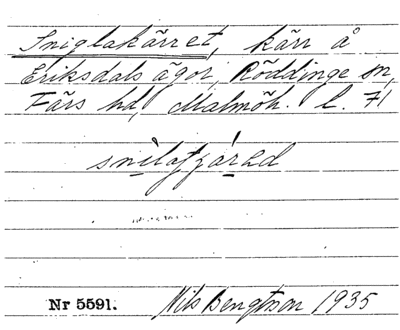 Sniglakärret, kärr å
Eriksdals ägor, Röddinge sn,
Färs hd, Malmöh. l. 71
Nr 5591. Nils Bengtson 1935